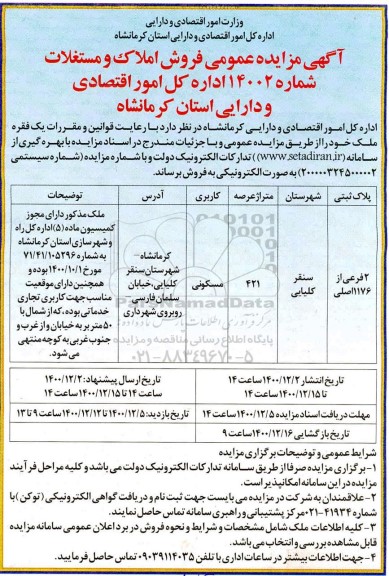 وزارت امور اقتصادی و دارایی
اداره کل امور اقتصادی و دارایی استان کرمانشاه
آگهی مزایده عمومی فروش املاک و مستغلات
شماره ۱۴۰۰۲ اداره کل امور اقتصادی
و دارایی استان کرمانشاه
اداره کل امور اقتصادی و دارایی کرمانشاه در نظر دارد با رعایت قوانین و مقررات یک فقره
ملک خود را از طریق مزایده عمومی و با جزئیات مندرج در اسناد مزایده با بهره گیری از
سامانه (www.setadiran.ir) تدارکات الکترونیک دولت و با شماره مزایده (شماره سیستمی
۲۰۰۰۰۰۳۲۴۵۰۰۰۰۰۲) به صورت الکترونیکی به فروش برساند.
پلاک ثبتی شهرستان متراژ عرصه کاربری آدرس توضیحات
۲ فرعی از
۱۱۷۶ اصلی
سنقر
کلیایی
۴۲۱
مسکونی
کرمانشاه-
شهرستان سنقر
کلیایی، خیابان
سلمان فارسی
روبروی شهرداری
ملک مذکور دارای مجوز
کمیسیون ماده (۵) اداره کل راه
و شهرسازی استان کرمانشاه
به شماره ۷۱/۴۱/۱۰۵۲۹۶
مورخ ۱۴۰۰/۱۰/۱ بوده و
همچنین دارای موقعیت
مناسب جهت کاربری تجاری
خدماتی بوده، که از شمال با
۵۰ متر بر به خیابان و از غرب و
جنوب غربی به کوچه منتهی
می شود.
ParsNamadData
۰۲۱-۸۸۳۴۹۶۷۰-۵
تاریخ انتشار ۱۴۰۰/۱۲/۲ ساعت ۱۴
تا ۱۴۰۰/۱۲/۱۵ ساعت ۱۴
تاریخ ارسال پیشنهاد: ۱۴۰۰/۱۲/۲
ساعت ۱۴ تا ۱۴۰۰/۱۲/۱۵ ساعت ۱۴
مهلت دریافت اسناد مزایده ۱۴۰۰/۱۲/۵ ساعت ۱۴
تاریخ بازدید: ۱۴۰۰/۱۲/۵ تا ۱۴۰۰/۱۲/۱۲ ساعت ۹ تا ۱۳
تاریخ بازگشایی ۱۴۰۰/۱۲/۱۶ ساعت ۹
شرایط عمومی و توضیحات برگزاری مزایده
۱- برگزاری مزایده صرفا از طریق سامانه تدارکات الکترونیک دولت می باشد و کلیه مراحل فرآیند
مزایده در این سامانه امکانپذیر است.
۲- علاقمندان به شرکت در مزایده می بایست جهت ثبت نام و دریافت گواهی الکترونیکی (توکن) با
شماره ۴۱۹۳۴-۰۲۱ مرکز پشتیبانی و راهبری سامانه تماس حاصل نمایند.
۳- کلیه اطلاعات ملک شامل مشخصات و شرایط و نحوه فروش در برد اعلان عمومی سامانه مزایده
قابل مشاهده بررسی و انتخاب می باشد.
۴- جهت اطلاعات بیشتر در ساعات اداری با تلفن ۰۹۰۳۹۱۱۴۰۳۵ تماس حاصل فرمایید.